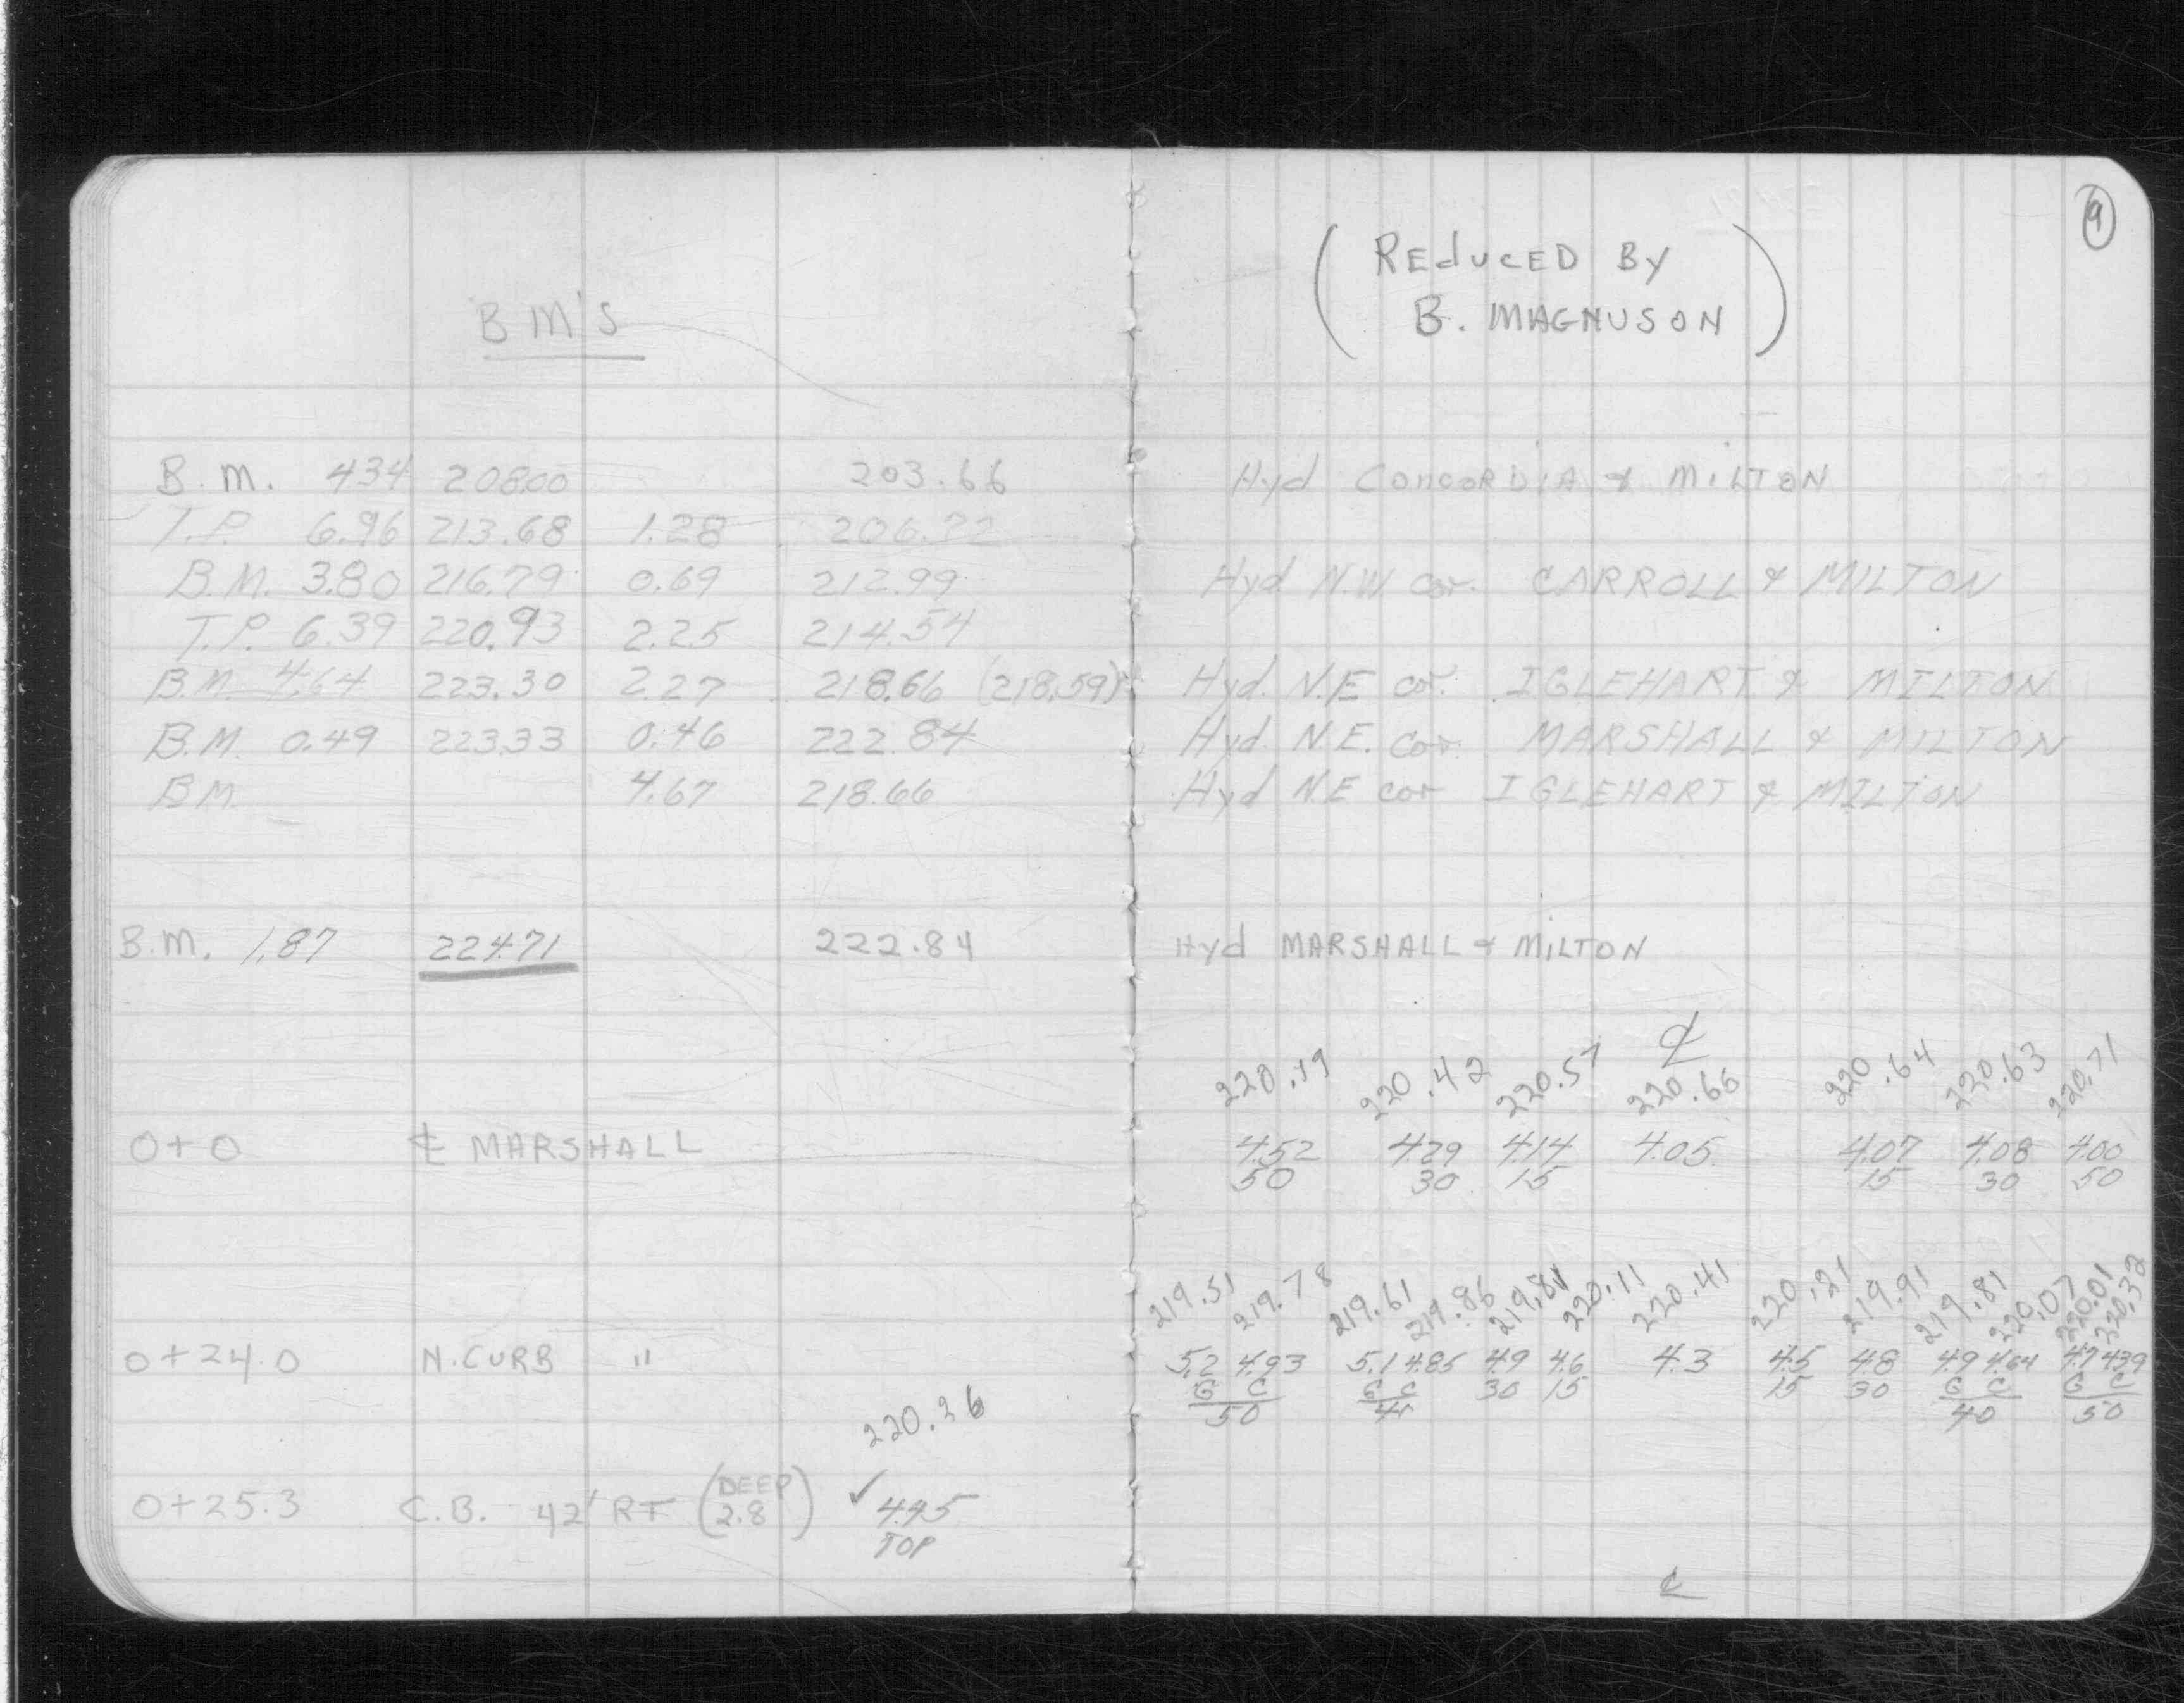 9
(REDUCED BY
B. MAGNUSON)
BM'S
B.M. 434 208.00 203.66 Hyd CONCORDIA & MILTON
T.P. 6.96 213.68 1.28 206.72
B.M. 3.80 216.79 0.69 212.99 Hyd. N.W. cor. CARROLL & MILTON
T.P. 6.39 220.93 2.25 214.54
B.M. 4.64 223.30 2.27 218.66 (218.59) Hyd. N.E. cor. IGLEHART & MILTON
B.M. 0.49 223.33 0.46 222.84 Hyd. N.E. cor. MARSHALL & MILTON
BM 4.67 218.66 Hyd NE cor IGLEHART & MILTON
B.M. 1.87 224.71 222.84 Hyd MARSHALL & MILTON
℄
220.19 220.42 220.57 220.66 220.64 220.63 220.71
0+0 ℄ MARSHALL 4.52 4.29 4.14 4.05 4.07 4.08 4.00
50 30 15 15 30 50
219.51 219.78 219.61 219.86 219.81 220.11 220.41 220.21 219.91 219.81 220.07 220.01 220.32
0+24.0 N. CURB " 5.2 4.93 5.1 4.85 4.9 4.6 4.3 4.5 4.8 4.9 4.64 4.7 4.39
G C G C 30 15 15 30 G C G C
50 41 40 50
220.26
0+25.3 C.B. 42' RT (DEEP 2.8) ✓ 4.45
TOP
℄